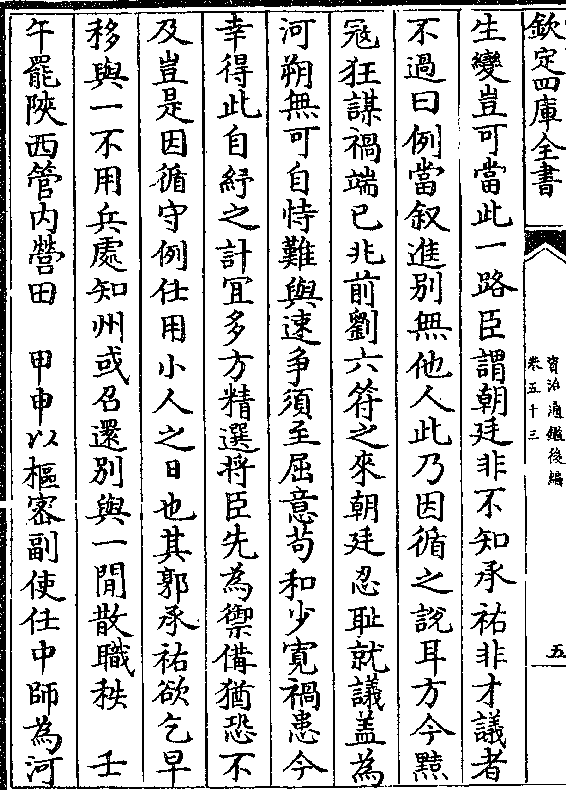 欽定四庫全書
資治通鑑後編
卷五十三
五
生變豈可當此一路臣謂朝廷非不知承祐非才議者
不過曰例當叙進别無他人此乃因循之說耳方今黠
冦狂謀禍端已兆前劉六符之來朝廷忍耻就議盖為
河朔無可自恃難與速争須至屈意苟和少寛禍患今
幸得此自紓之計宜多方精選將臣先為禦備猶恐不
及豈是因循守例任用小人之日也其郭承祐欲乞早
移與一不用兵處知州或召還别與一閒散職秩　壬
午罷陜西管内營田　甲申以樞密副使任中師為河